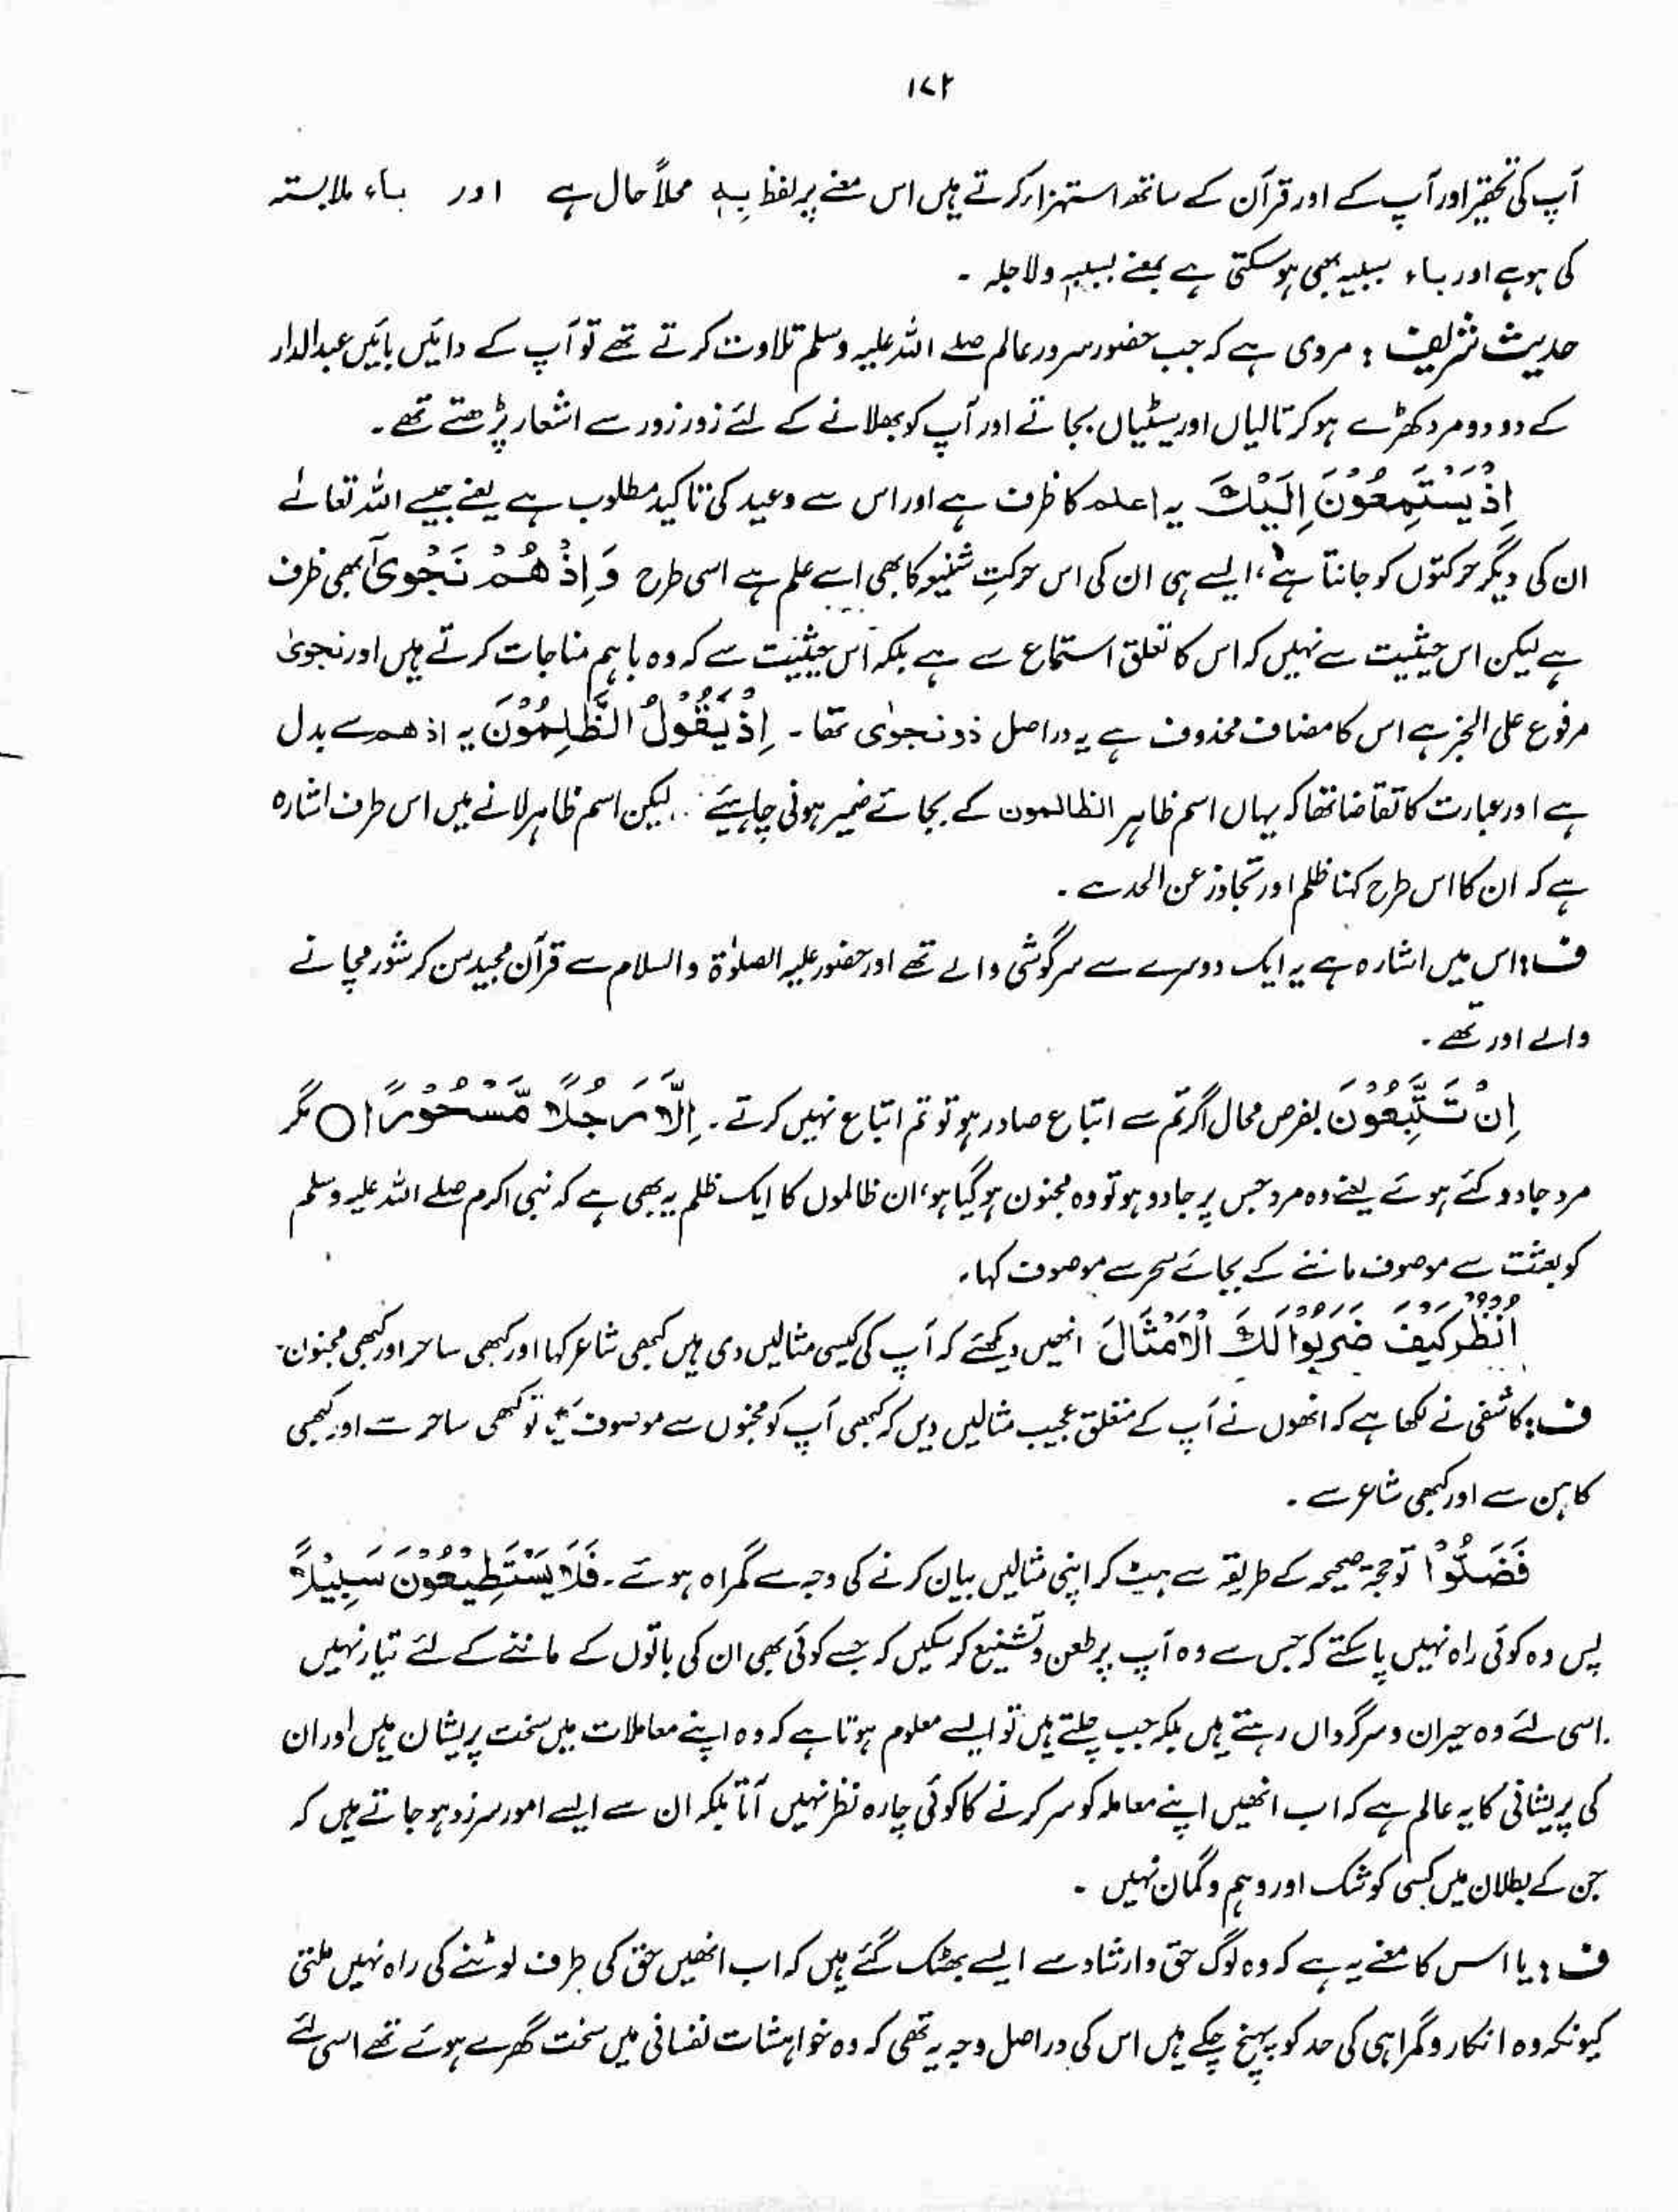 ۱۷۲
آپ کی تحقیر اور آپ کے اور قرآن کے ساتھ استہزاء کرتے ہیں اس معنے پر لفظ بِہٖ محلاً حال ہے اور باء ملابستہ
کی ہوہے اور باء سببیہ بھی ہو سکتی ہے بمعنے بسببہٖ ولاجلہ ۔
حدیث شریف : مروی ہے کہ جب حضور سرور عالم صلے اللہ علیہ وسلم تلاوت کرتے تھے تو آپ کے دائیں بائیں عبدالدار
کے دو دو مرد کھڑے ہو کر تالیاں اور سیٹیاں بجاتے اور آپ کو بھلانے کے لئے زور زور سے اشعار پڑھتے تھے ۔
اِذْ یَسْتَمِعُوْنَ اِلَیْكَ یہ اعلم کا ظرف ہے اور اس سے وعید کی تاکید مطلوب ہے یعنے جیسے اللہ تعالٰے
ان کی دیگر حرکتوں کو جانتا ہے، ایسے ہی ان کی اس حرکتِ شنیو کا بھی اسے علم ہے اسی طرح وَ اِذْ هُمْ نَجْوٰی بھی ظرف
ہے لیکن اس حیثیت سے نہیں کہ اس کا تعلق استماع سے ہے بلکہ اس حیثیت سے کہ وہ باہم مناجات کرتے ہیں اور نجویٰ
مرفوع علی الخبر ہے اس کا مضاف محذوف ہے یہ دراصل ذو نجوٰی تھا ۔ اِذْ یَقُوْلُ الظّٰلِمُوْنَ یہ اذ ھم سے بدل
ہے اور عبارت کا تقاضا تھا کہ یہاں اسم ظاہر الظالمون کے بجائے ضمیر ہونی چاہیئے ۔ لیکن اسم ظاہر لانے میں اس طرف اشارہ
ہے کہ ان کا اس طرح کہنا ظلم اور تجاوز عن الحد ہے ۔
ف : اس میں اشارہ ہے یہ ایک دوسرے سے سرگوشی والے تھے اور حضور علیہ الصلوٰۃ والسلام سے قرآن مجید سن کر شور مچانے
والے اور تھے ۔
اِنْ تَتَّبِعُوْنَ بفرص محال اگر تم سے اتباع صادر ہو تو تم اتباع نہیں کرتے ۔ اِلَّا رَجُلًا مَّسْحُوْرًا ○ مگر
مرد جادو کئے ہوئے یعنے وہ مرد جس پر جادو ہو تو وہ مجنون ہو گیا ہو، ان ظالموں کا ایک ظلم یہ بھی ہے کہ نبی اکرم صلے اللہ علیہ وسلم
کو بعثت سے موصوف ماننے کے بجائے سحر سے موصوف کہا ۔
اُنْظُرْ كَیْفَ ضَرَبُوْا لَكَ الْاَمْثَالَ انھیں دیکھئے کہ آپ کی کیسی مثالیں دی ہیں کبھی شاعر کہا اور کبھی ساحر اور کبھی مجنون ۔
ف : کاشفی نے لکھا ہے کہ انھوں نے آپ کے متعلق عجیب مثالیں دیں کہ کبھی آپ کو مجنوں سے موصوف تو کبھی ساحر سے اور کبھی
کاہن سے اور کبھی شاعر سے ۔
فَضَلُّوْا تو حجۃ صحیحہ کے طریقہ سے ہٹ کر اپنی مثالیں بیان کرنے کی وجہ سے گمراہ ہوئے ۔ فَلَا یَسْتَطِیْعُوْنَ سَبِیْلًا
پس وہ کوئی راہ نہیں پا سکتے کہ جس سے وہ آپ پر طعن و تشنیع کر سکیں کہ جسے کوئی بھی ان کی باتوں کے ماننے کے لئے تیار نہیں
اسی لئے وہ حیران و سرگرداں رہتے ہیں بلکہ جب چلتے ہیں تو ایسے معلوم ہوتا ہے کہ وہ اپنے معاملات میں سخت پریشان ہیں اور ان
کی پریشانی کا یہ عالم ہے کہ اب انھیں اپنے معاملہ کو سر کرنے کا کوئی چارہ نظر نہیں آتا بلکہ ان سے ایسے امور سرزد ہو جاتے ہیں کہ
جن کے بطلان میں کسی کو شک اور وہم و گمان نہیں ۔
ف : یا اس کا معنے یہ ہے کہ وہ لوگ حق و ارشاد سے ایسے بھٹک گئے ہیں کہ اب انھیں حق کی طرف لوٹنے کی راہ نہیں ملتی
کیونکہ وہ انکار و گمراہی کی حد کو پہنچ چکے ہیں اس کی دراصل وجہ یہ تھی کہ وہ خواہشات نفسانی میں سخت گھرے ہوئے تھے اسی لئے